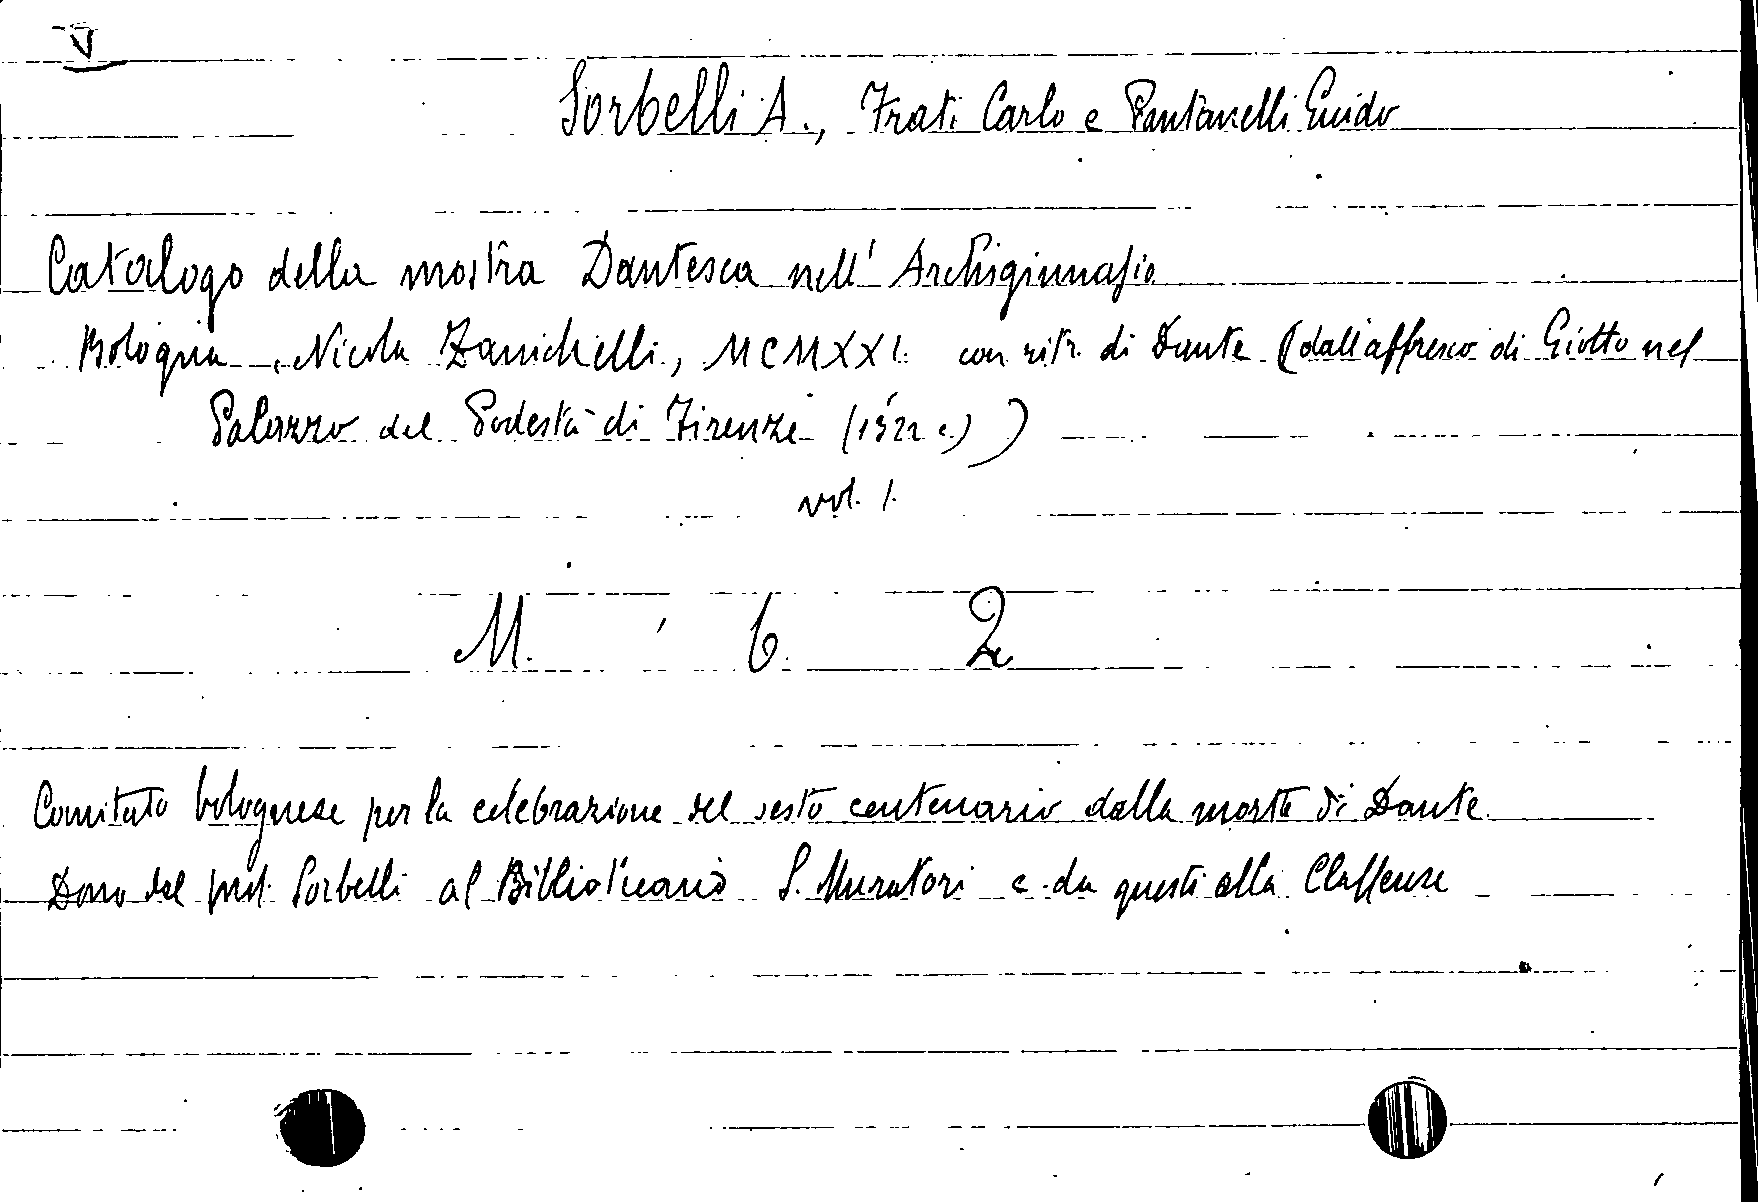 V
Sorbelli A., Frati Carlo e Pantanelli Guido
Catalogo della mostra Dantesca nell' Archiginnasio
Bologna, Nicola Zanichelli, MCMXXI. con ritr. di Dante (dall'affresco di Giotto nel
Palazzo del Podestà di Firenze (1322 c.))
vol. 1.
M. 6. 2
Comitato bolognese per la celebrazione del sesto centenario dalla morte di Dante
Dono del prof. Sorbelli al Bibliotecario S. Muratori e da questi alla Classense